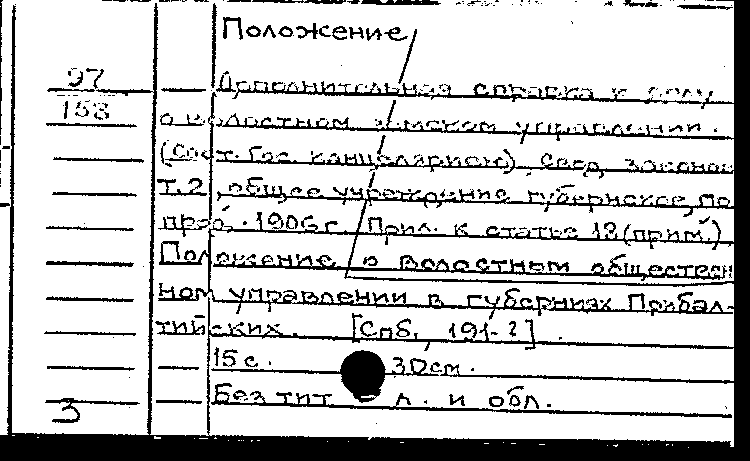 Положение
97
Дополнительная справка к делу
153
о волостном земском управлении.
(Сост. Гос. канцеляриею). Свод законов
т.2, общее учреждение губернское, по
прод. 1906 г. Прил. к статье 12 (прим.)
Положение о волостным обществен
ном управлении в губерниях Прибал-
тийских. [Спб., 191-?].
15 с. 30 см.
Без тит. л. и обл.
3